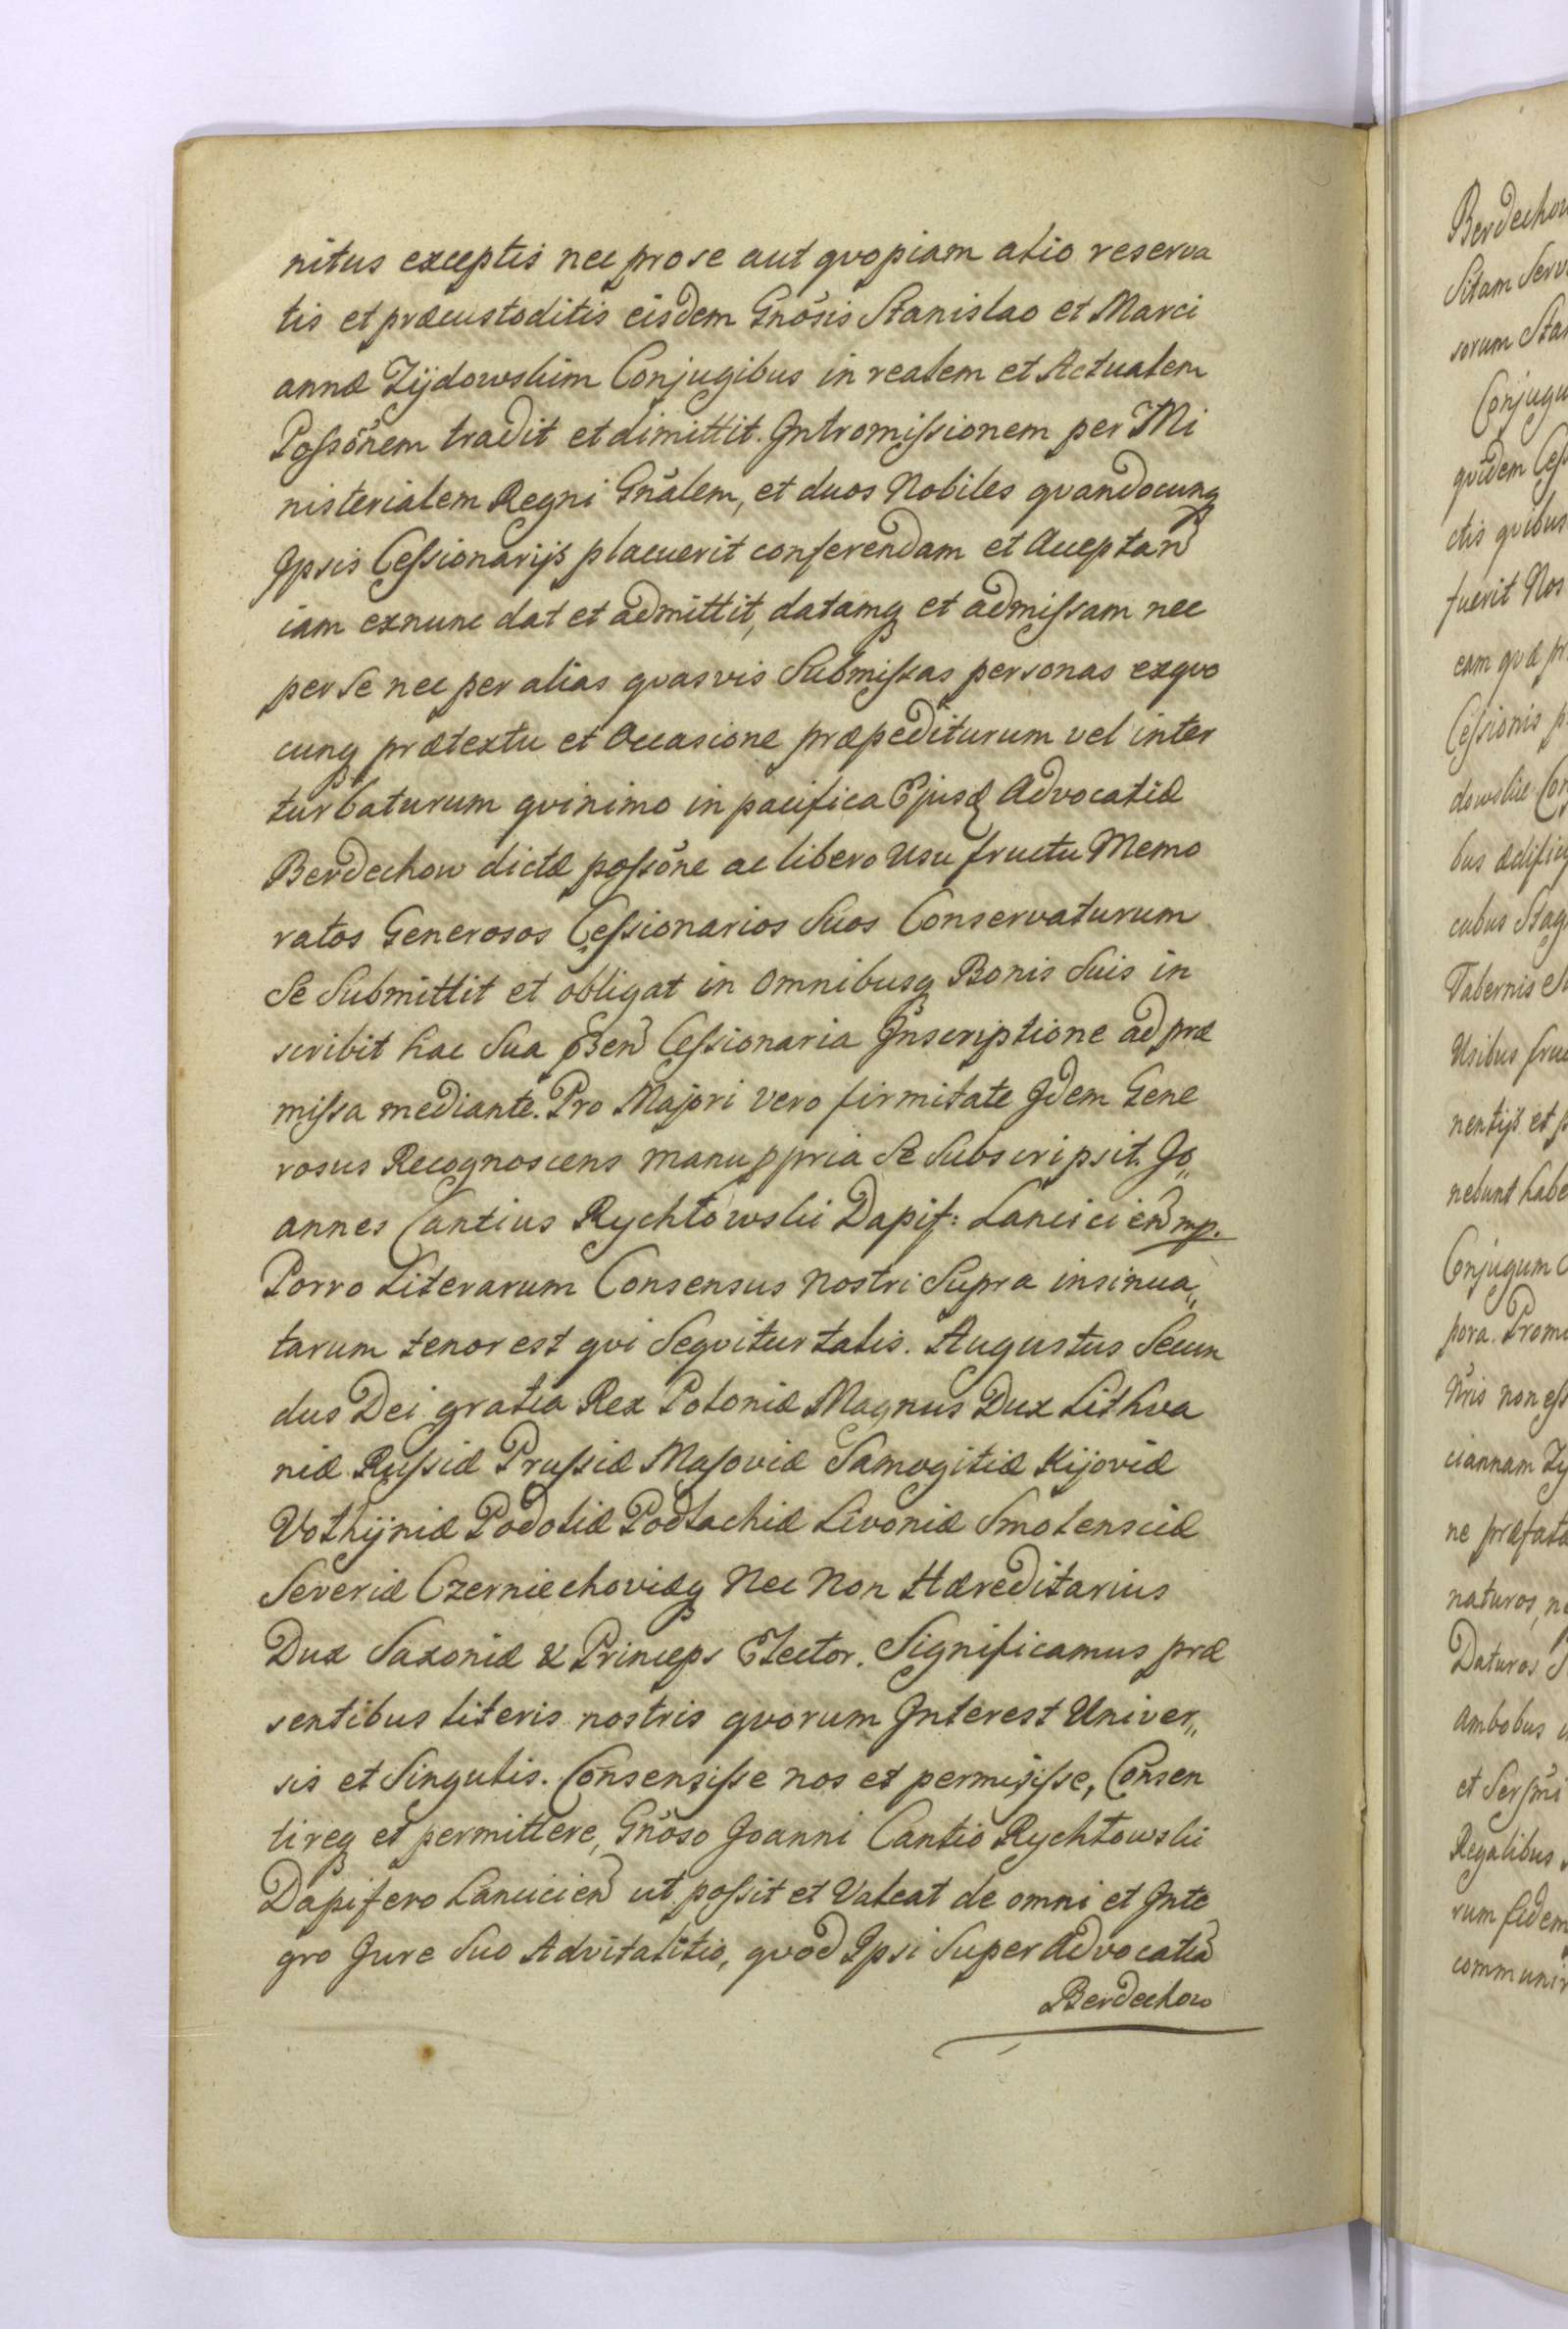 nitus exceptis nec pro se aut qvopiam alio reserva
tis et præcustoditis eisdem Gnõsis Stanislao et Marci
annæ Zÿdowskim Conjugibus in realem et Actualem
Poſsõnem tradit et dimittit. Intromiſsionem per Mi
nisterialem Regni Gnãlem, et duos Nobiles qvandocunq
Ipsis Ceſsionarijs placuerit conferendam et Acceptan
iam exnunc dat et admittit, datamq et admiſsam nec
per se nec per alias qvasvis Submiſsas personas exqvo
cunq prætextu et Occasione præpediturum vel inter
turbaturum qvinimo in pacifica Ejusd Advocatiæ
Berdechow dictæ poſsõne ac libero Usu fructu Memo
ratos Generosos Ceſsionarios Suos Conservaturum
Se Submittit et obligat in Omnibusq Bonis Suis in
scribit hac Sua pñsen Ceſsionaria Inscriptione ad præ
miſsa mediante. Pro Majori vero firmitate Idem Gene
rosus Recognoscens manu ppria Se Subscripsit. Jo„
annes Cantius Rychłowski Dapif: Lancicien mp.
Porro Literarum Consensus nostri Supra insinua„
tarum tenor est qvi Seqvitur talis. Augustus Secun
dus Dei gratia Rex Poloniæ Magnus Dux Lithva
niæ Ruſsiæ Pruſsiæ Maſoviæ Samogitiæ Kijoviæ
Volhÿniæ Podoliæ Podlachiæ Livoniæ Smolensciæ
Severiæ Czerniechoviæq Nec Non Hæreditarius
Dux Saxoniæ & Princeps Elector. Significamus præ
sentibus literis nostris qvorum Interest Univer„
sis et Singulis. Consensiſse nos et permisiſse, Consen
tireq et permittere, Gnõso Joanni Cantio Rychłowski
Dapifero Lancicien ut poſsit et Valeat de omni et Inte
gro Jure Suo Advitalitio, qvod Ipsi Super Advocatia
Berdechow
Berdechow
Sitam
sorum
Conjugu
qvidem
ctis qvibus
fuerit Nos
eam qvæ
Ceſsionis
dowskie
bus
cubus
Tabernis
Usibus
nentijs et
nebunt
Conjugum
pora.
Nris non
ciannam
ne præfata
naturos,
Daturos,
ambobus
et
Regalibus
rum fidem
communir